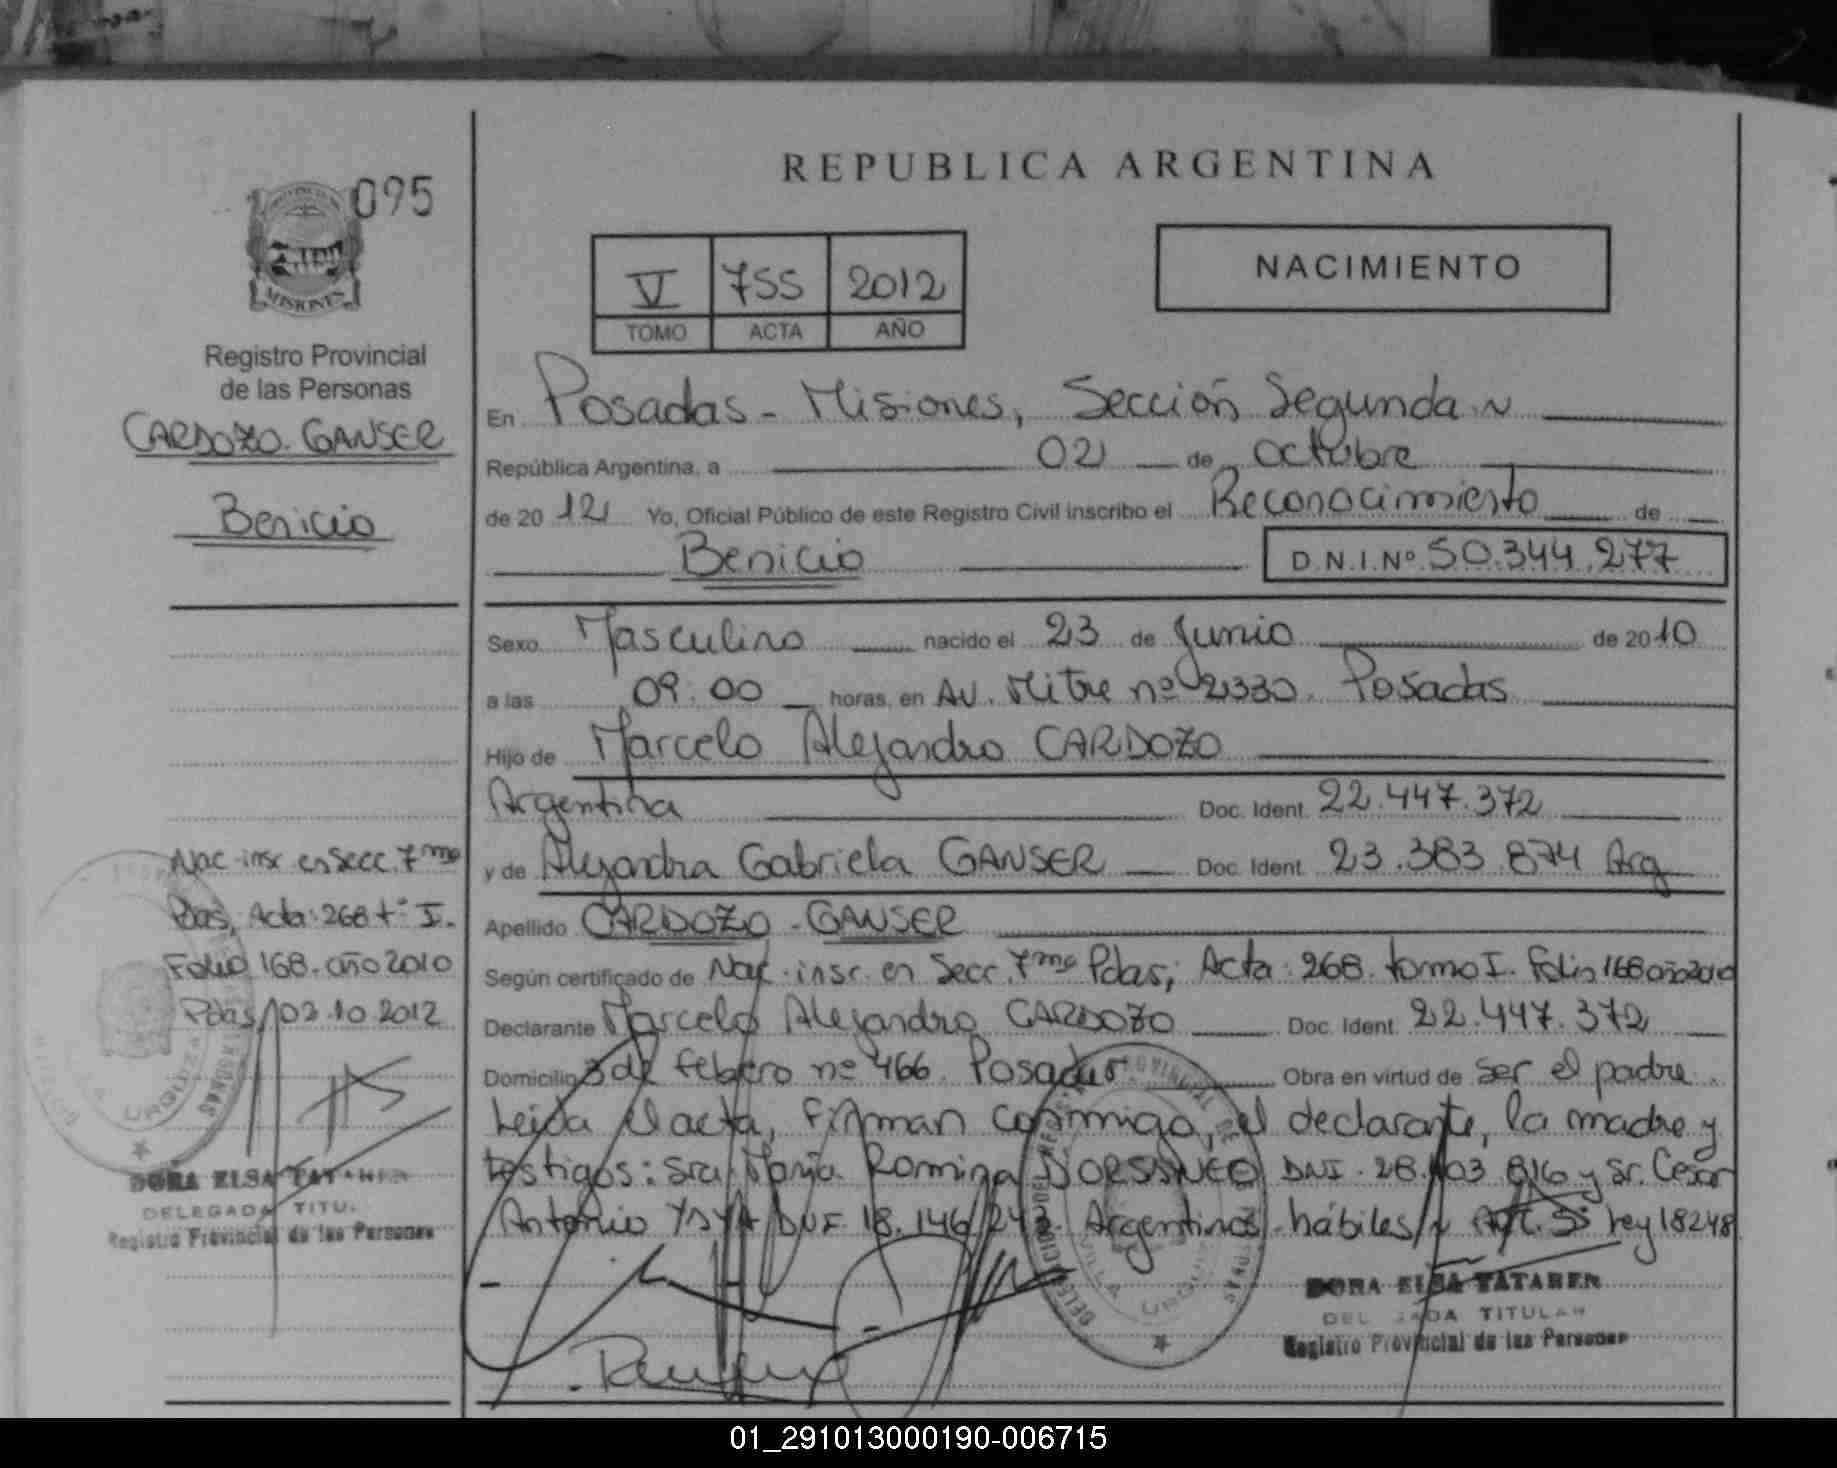 095
MISIONES
Registro Provincial
de las Personas
CARDOZO. GANSER
Benicio
Nac. insc. en Secc. 7ma
Pdas, Acta: 268 t° I.
Folio 168. año 2010
Pdas, 02.10.2012
DORA ELSA TATAREN
DELEGADA TITU
Registro Provincial de las Personas
REPUBLICA ARGENTINA
V 755 2012
TOMO ACTA AÑO
NACIMIENTO
En Posadas - Misiones, Sección Segunda
República Argentina, a 02 de octubre
de 2012 Yo, Oficial Público de este Registro Civil inscribo el Reconocimiento de
Benicio D.N.I.Nº 50.344.277
Sexo Masculino nacido el 23 de Junio de 2010
a las 09:00 horas, en Av. Mitre nº 2330. Posadas
Hijo de Marcelo Alejandro CARDOZO
Argentina Doc. Ident. 22.447.372
y de Alejandra Gabriela GANSER Doc. Ident. 23.383.874 Arg
Apellido CARDOZO - GANSER
Según certificado de Nac. insc. en Secc. 7ma Pdas, Acta: 268. tomo I. Folio 168 año 2010
Declarante Marcelo Alejandro CARDOZO Doc. Ident. 22.447.372
Domicilio 3 de febrero nº 466. Posadas Obra en virtud de ser el padre.
Leida el acta, firman conmigo, el declarante, la madre y
testigos: Sra. María Romina DNI. 28. 816 y Sr. Cesar
Antonio DNI. 18.146. Argentinos hábiles Art. 5º Ley 18248
DORA ELSA TATAREN
DELEGADA TITULAR
Registro Provincial de las Personas
01_291013000190-006715